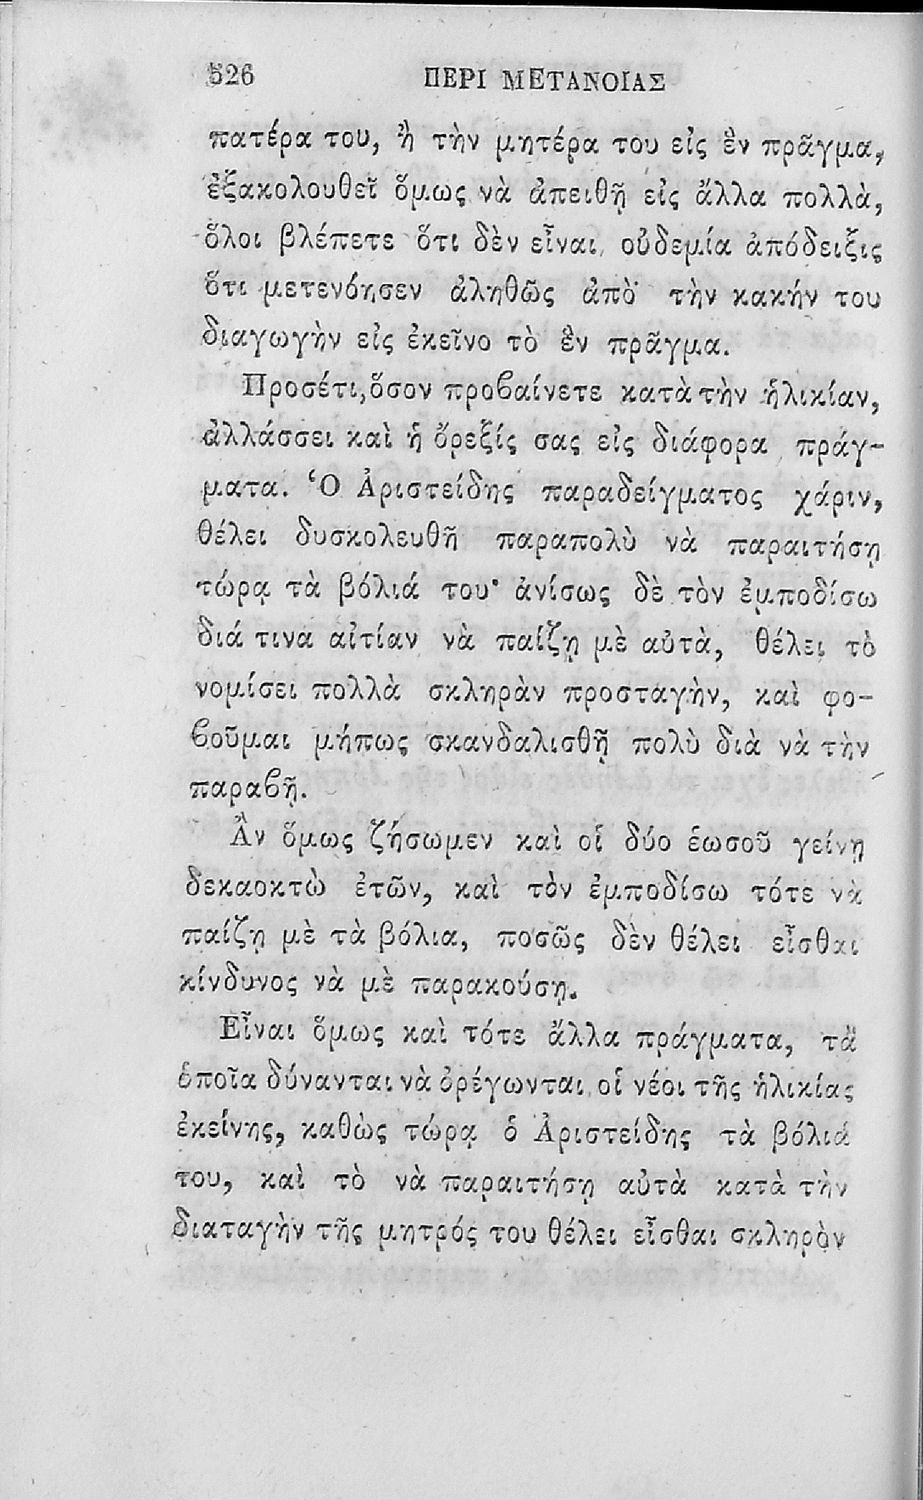 526 ΠΕΡΙ ΜΕΤΑΝΟΙΑΣ
πατέρα του, ἢ τὴν μητέρα του εἰς ἓν πρᾶγμα,
ἐξακολουθεῖ ὅμως νὰ ἀπειθῇ εἰς ἄλλα πολλὰ,
ὅλοι βλέπετε ὅτι δὲν εἶναι οὐδεμία ἀπόδειξις
ὅτι μετενόησεν ἀληθῶς ἀπὸ τὴν κακήν του
διαγωγὴν εἰς ἐκεῖνο τὸ ἓν πρᾶγμα.
Προσέτι, ὅσον προβαίνετε κατὰ τὴν ἡλικίαν,
ἀλλάσσει καὶ ἡ ὄρεξίς σας εἰς διάφορα πράγ-
ματα. Ὁ Ἀριστείδης παραδείγματος χάριν,
θέλει δυσκολευθῆ παραπολὺ νὰ παραιτήσῃ
τώρα τὰ βόλιά του· ἀνίσως δὲ τὸν ἐμποδίσω
διά τινα αἰτίαν νὰ παίζῃ μὲ αὐτὰ, θέλει τὸ
νομίσει πολλὰ σκληρὰν προσταγὴν, καὶ φο-
βοῦμαι μήπως σκανδαλισθῇ πολὺ διὰ νὰ τὴν
παραβῇ.
Ἂν ὅμως ζήσωμεν καὶ οἱ δύο ἑωσοῦ γείνῃ
δεκαοκτὼ ἐτῶν, καὶ τὸν ἐμποδίσω τότε νὰ
παίζῃ μὲ τὰ βόλια, ποσῶς δὲν θέλει εἶσθαι
κίνδυνος νὰ μὲ παρακούσῃ.
Εἶναι ὅμως καὶ τότε ἄλλα πράγματα, τὰ
ὁποῖα δύνανται νὰ ὀρέγωνται οἱ νέοι τῆς ἡλικίας
ἐκείνης, καθὼς τώρα ὁ Ἀριστείδης τὰ βόλιά
του, καὶ τὸ νὰ παραιτήσῃ αὐτὰ κατὰ τὴν
διαταγὴν τῆς μητρός του θέλει εἶσθαι σκληρὸν